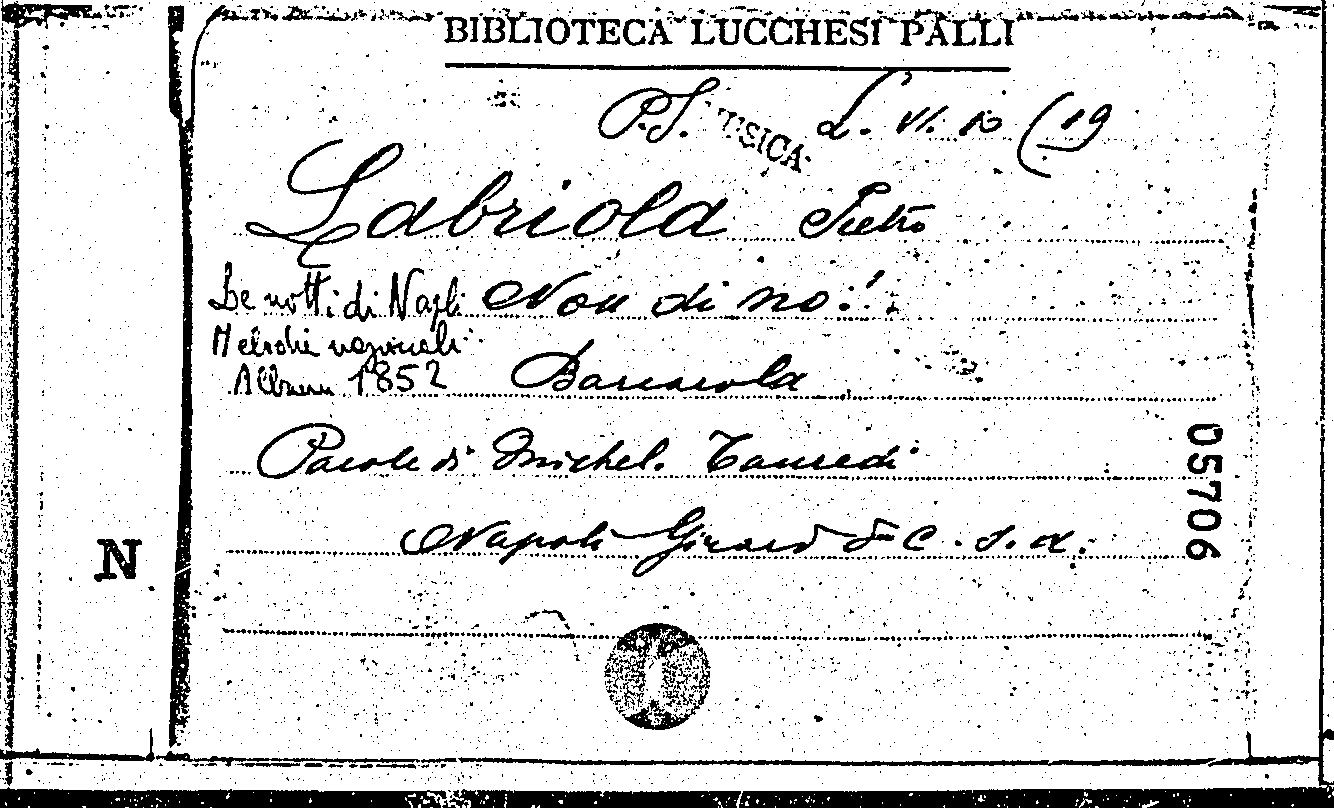 BIBLIOTECA LUCCHESI PALLI
P.S. MUSICA L. VI. 10 (19
Labriola Pietro
Le notti di Napoli Non di no!
Melodie nazionali
Album 1852 Barcarola
Parole di Michel. Tancredi
Napoli Girard & C. s. a.
05706
N